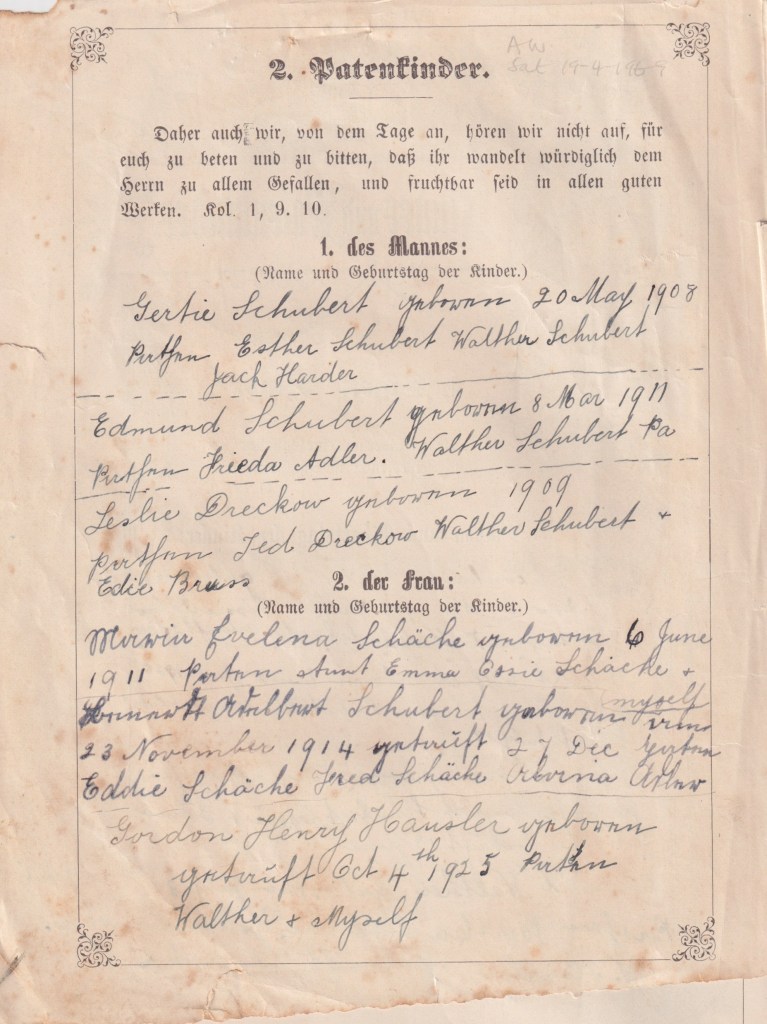 AW
Sat 19-4-1969
2. Patenkinder.
Daher auch wir, von dem Tage an, hören wir nicht auf, für
euch zu beten und zu bitten, daß ihr wandelt würdiglich dem
Herrn zu allem Gefallen, und fruchtbar seid in allen guten
Werken. Kol. 1, 9. 10.
1. des Mannes:
(Name und Geburtstag der Kinder.)
Gertie Schubert geboren 20 May 1908
Pathen Esther Schubert Walther Schubert
Jack Harder
Edmund Schubert geboren 8 Mar 1911
Pathen Frieda Adler. Walther Schubert Pa
Leslie Dreckow geboren 1909
Pathen Ted Dreckow Walther Schubert +
Edie Bruss
2. der Frau:
(Name und Geburtstag der Kinder.)
Maria Evelena Schäche geboren 6 June
1911 Paten Aunt Emma Essie Schäche +
myself
Adelbert Schubert geboren
23 November 1914 getauft 27 Dec Paten
Eddie Schäche Fred Schäche Alvina Adler
Gordon Henry Hausler geboren
getauft Oct 4th 1925 Paten
Walther & Myself